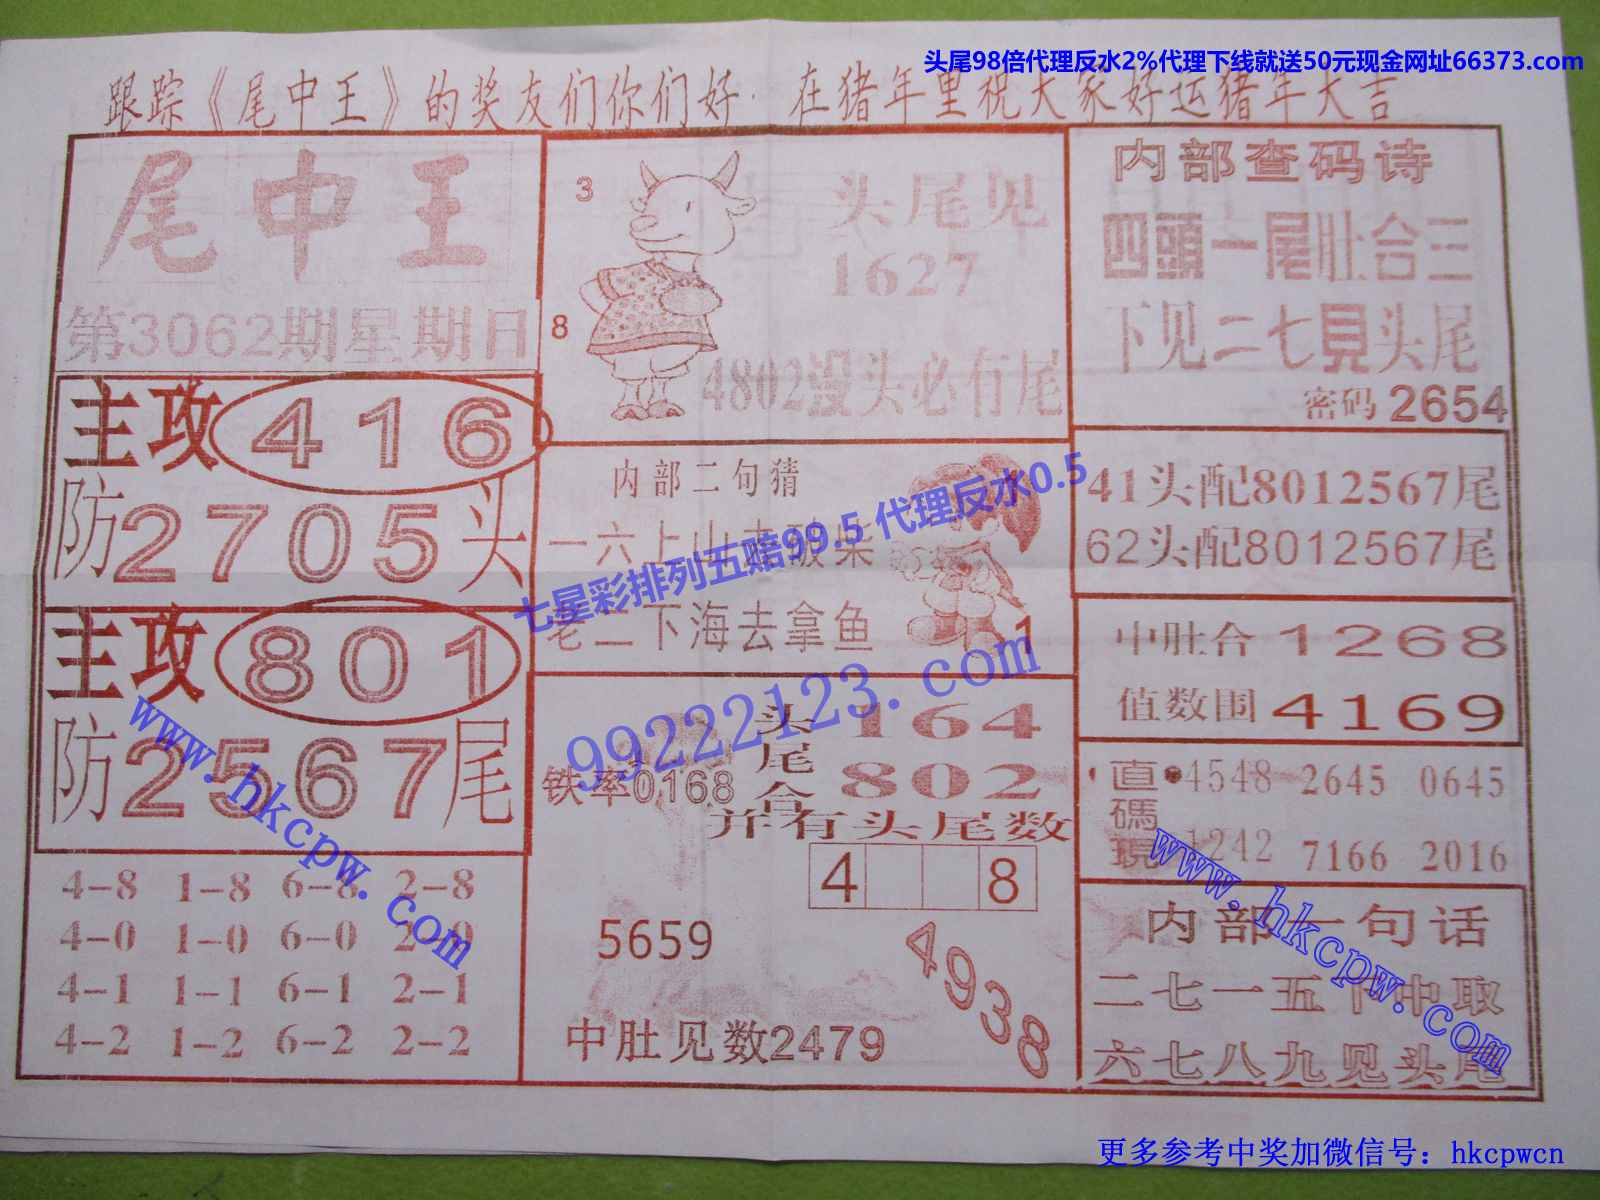 头尾98倍代理反水2%代理下线就送50元现金网址66373.com
跟踪《尾中王》的奖友们你们好.在猪年里祝大家好运猪年大吉
尾中王
第3062期星期日
主攻416
防2705头
主攻801
防2567尾
4-8 1-8 6-8 2-8
4-0 1-0 6-0 2-0
4-1 1-1 6-1 2-1
4-2 1-2 6-2 2-2
3
8
头尾见
1627
4802没头必有尾
内部二句猜
一六上山去破柴
老二下海去拿鱼
1
七星彩排列五赔99.5 代理反水0.5
99222123.com
铁率0168
头尾合
164
802
并有头尾数
4 8
5659
4938
中肚见数2479
内部查码诗
四頭一尾肚合三
下见二七見头尾
密码 2654
41头配8012567尾
62头配8012567尾
中肚合1268
值数围4169
直碼現
4548 2645 0645
1242 7166 2016
内部一句话
二七一五下中取
六七八九见头尾
www.hkcpw.com
www.hkcpw.com
更多参考中奖加微信号：hkcpwcn